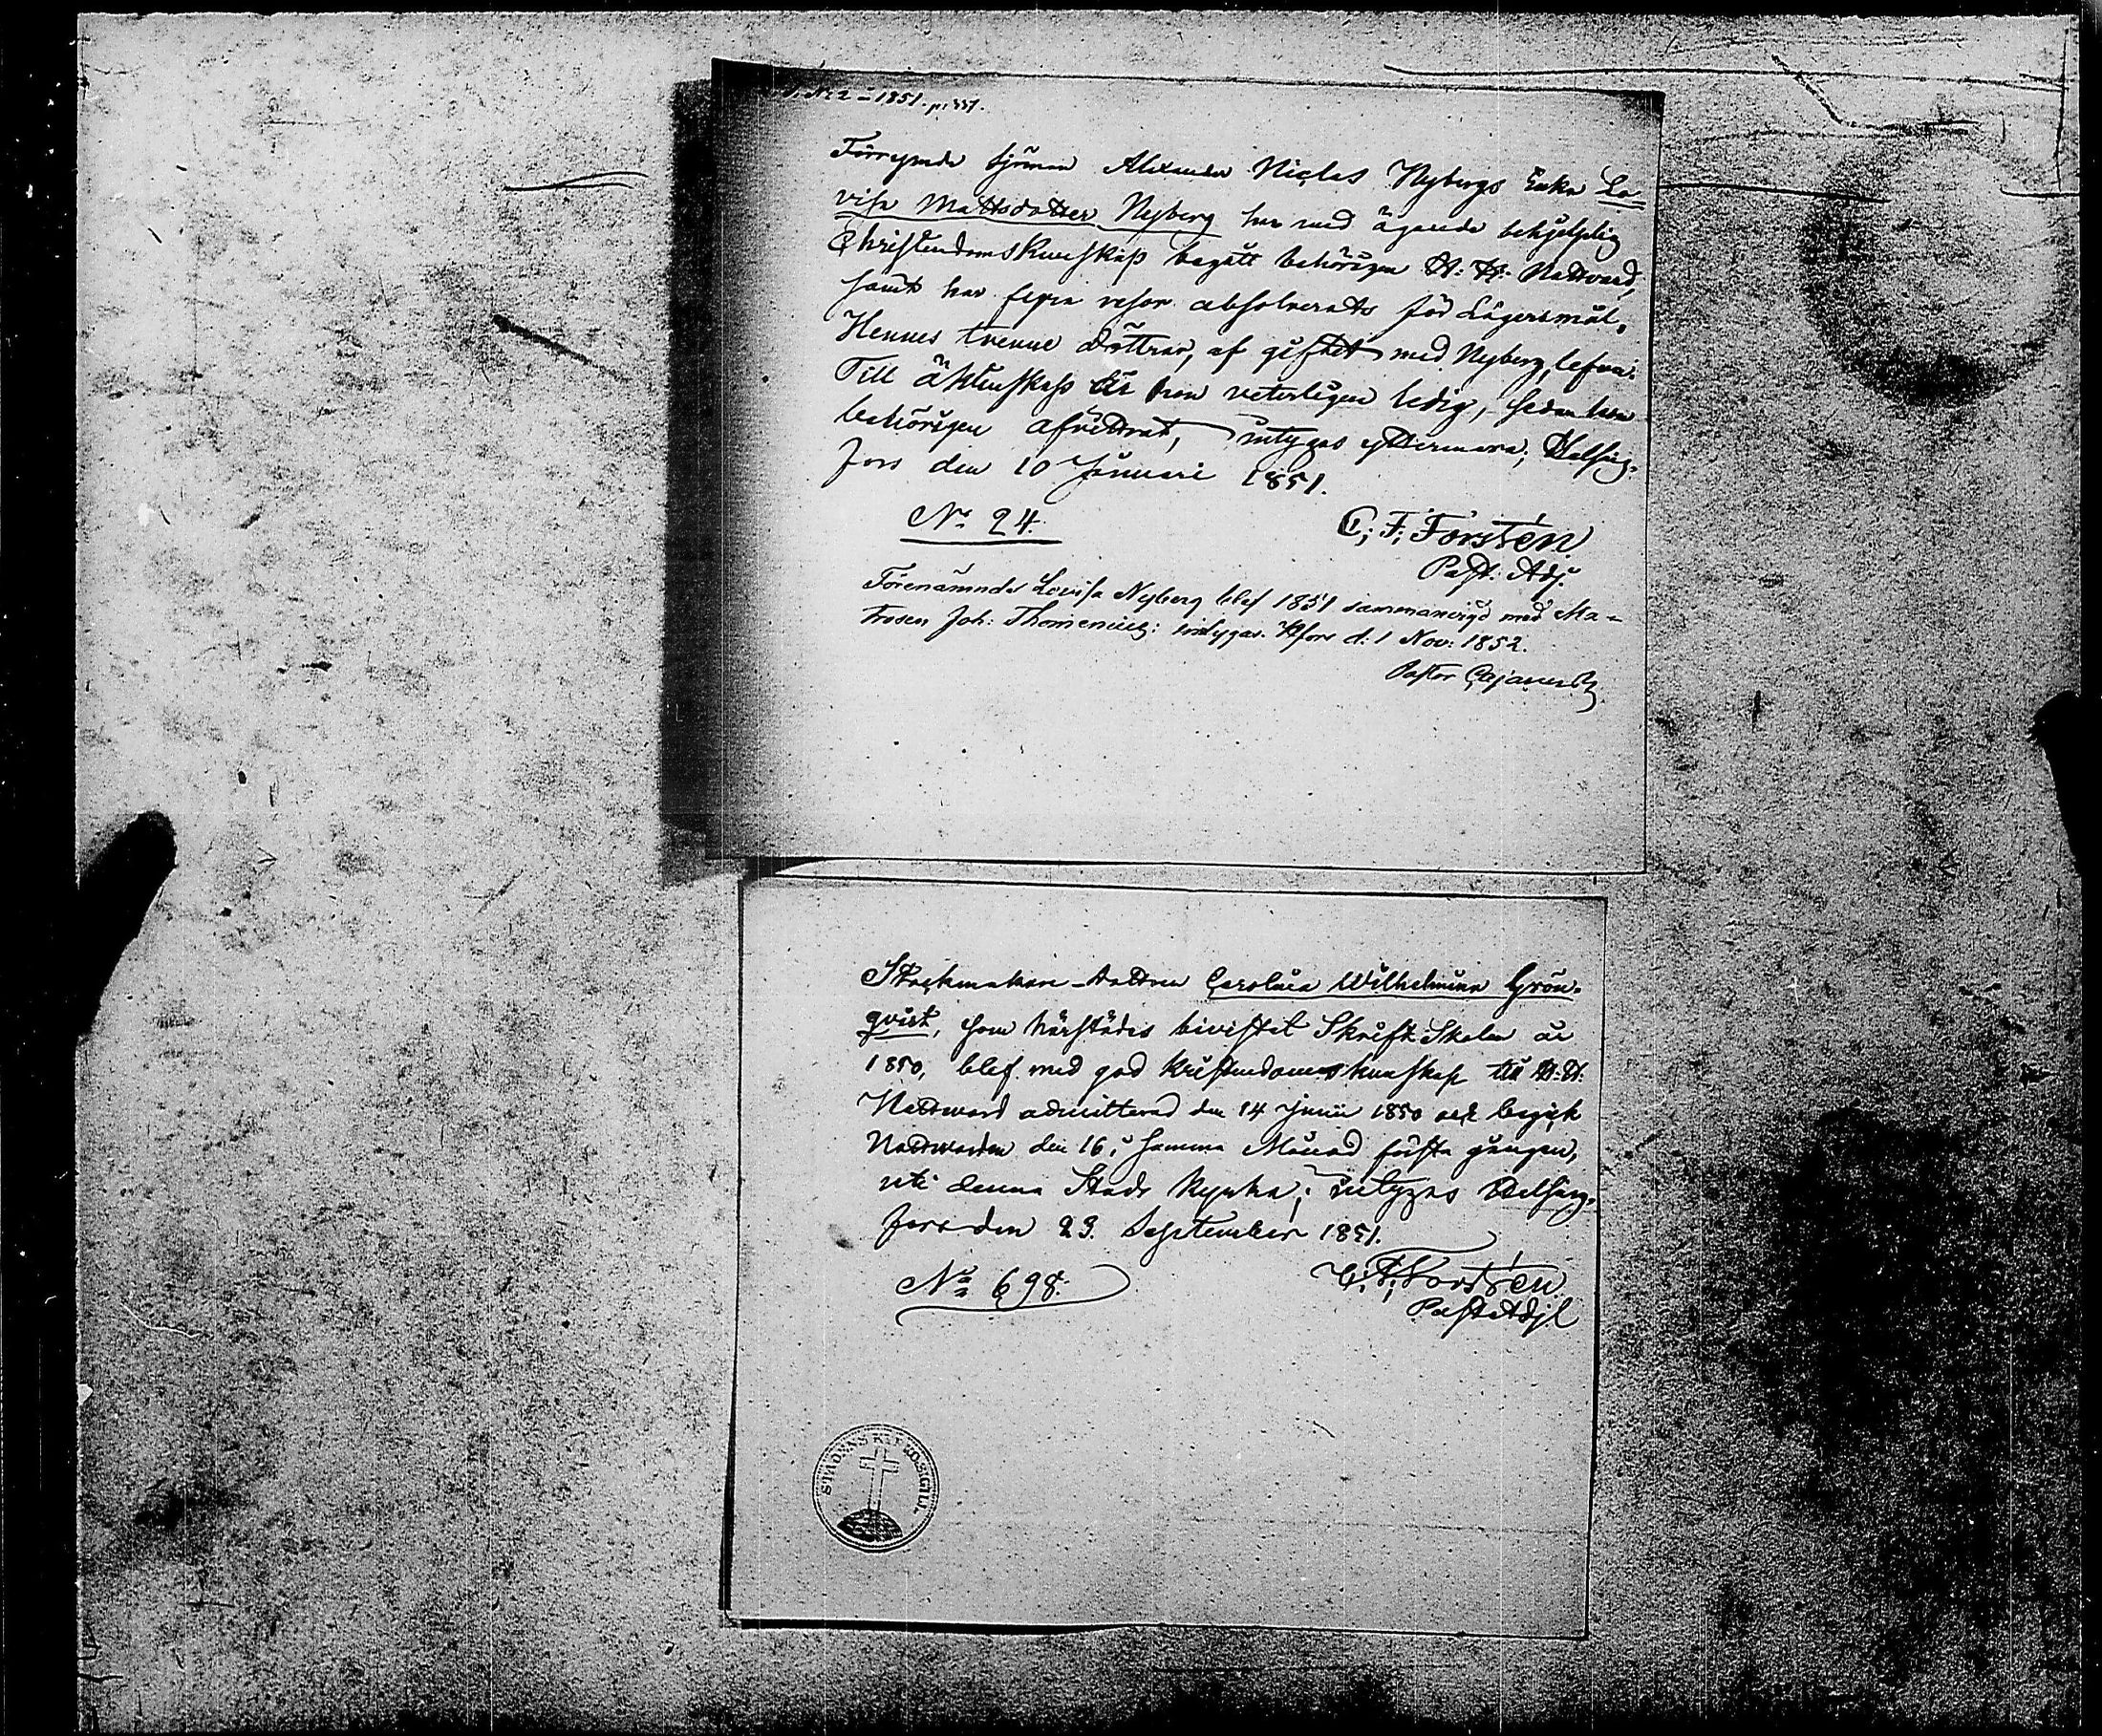 N:2 - 1851. p: 337.
Förrymde Sjöman Alexander Niclas Nybergs Enka Lo-
visa Mattsdotter Nyberg har med ägande behjelplig
Christendomskunskap begått behörigen H: H: Nattvard,
samt har resor absolverats för Lägersmål.
Hennes trenne döttrar, af giftet med Nyberg, lefva.
Till äktenskap är hon veterligen ledig, sedan hon
behörigen afvittrat, intygas yttermera; Helsing-
fors den 10 Januari 1851.
No 24.
C; F; Forstén
Past: Adj.
Förenämnde Lovisa Nyberg blef 1851 sammanvigd med Ma-
trosen Joh: intygas. Hfors d: 1 Nov: 1852.
Pastor Cajanus
dottren Carolina Wilhelmina Grön-
qvist, som härstädes bivistat Skrift-Skolan år
1850, blef med god Kristendomskunskap till H. H.
Nattward admitterad den 14 Junii 1850 och begick
Nattwarden den 16 i samma Månad första gången,
uti denna Stads Kyrka; intygas Helsing-
fors den 23. September 1851.
No 698.
C; F; Forstén.
Past: Adj
STADENS KYRKO-SIGILL.